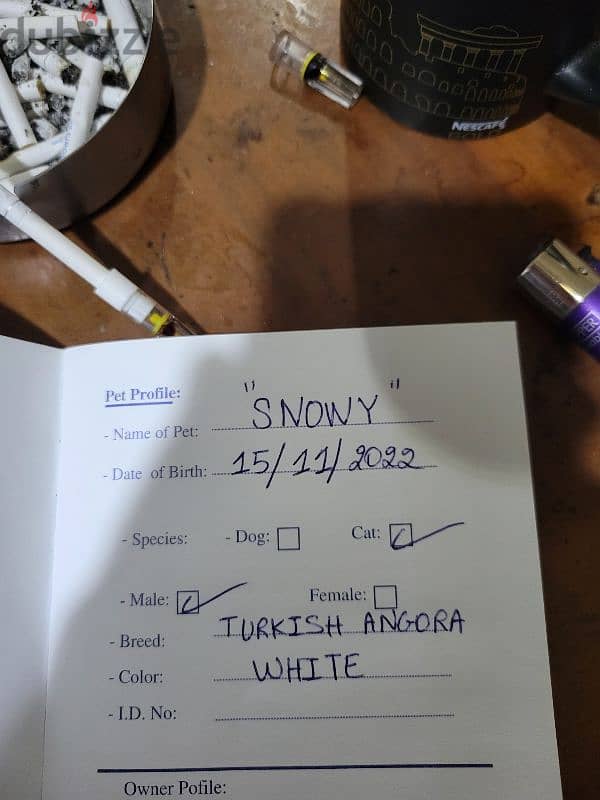 dubizzle
NESCAFÉ
Pet Profile:
- Name of Pet: "SNOWY"
- Date of Birth: 15/11/2022
- Species: - Dog: Cat:
- Male: Female:
- Breed: TURKISH ANGORA
- Color: WHITE
- I.D. No:
Owner Pofile: